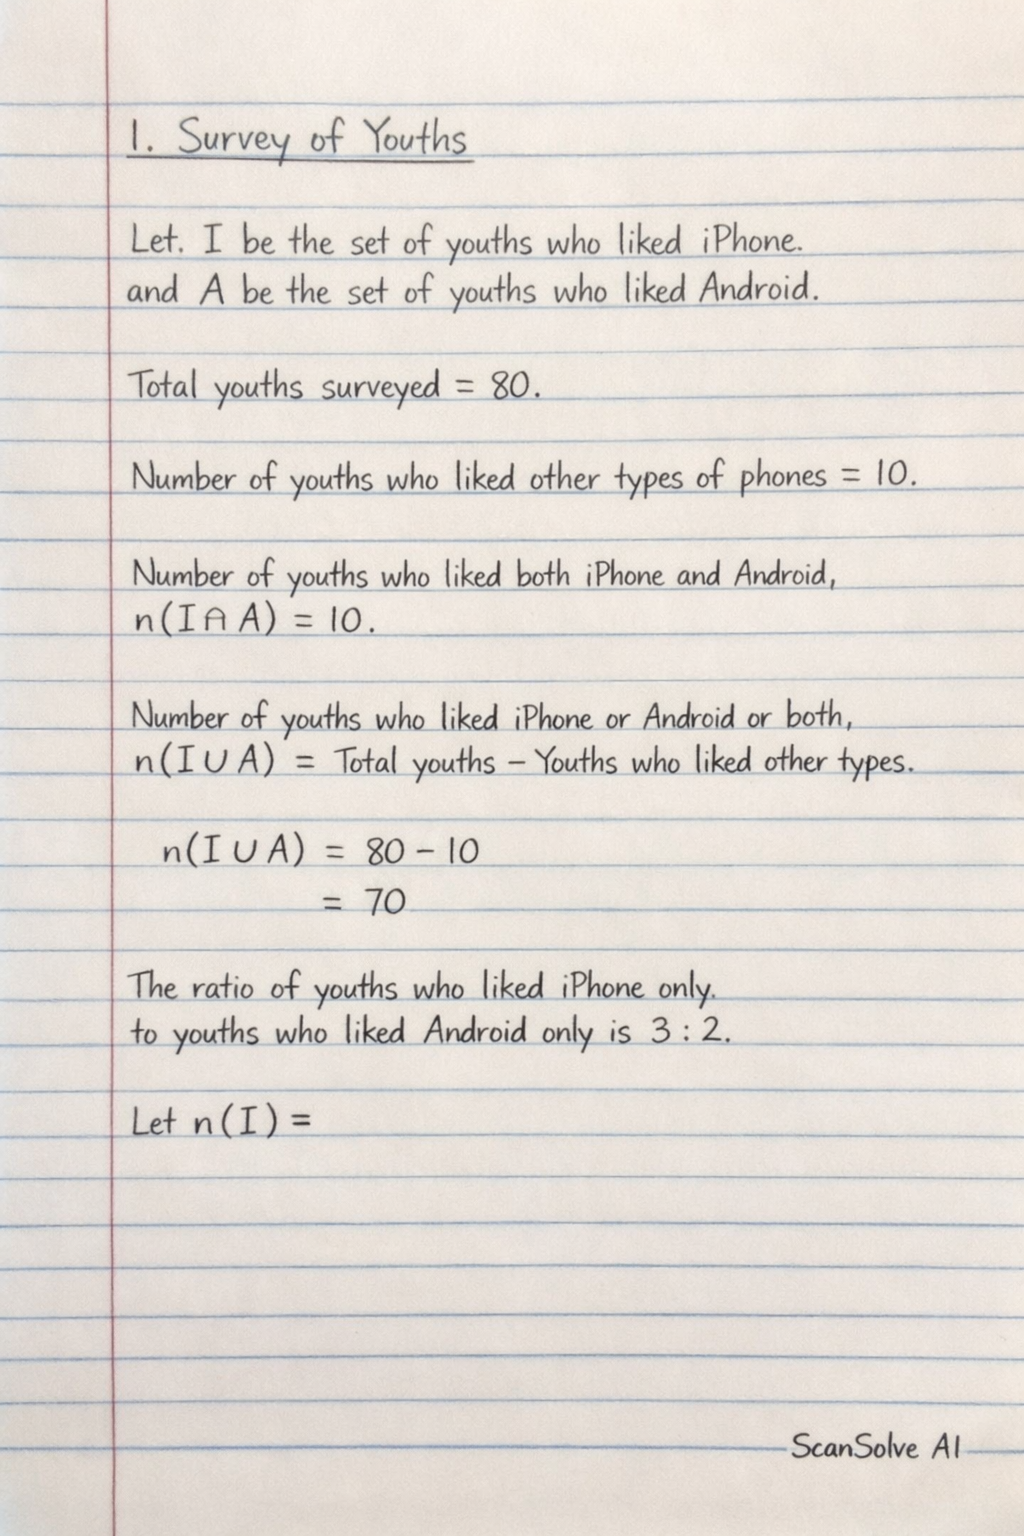 1. Survey of Youths
Let. I be the set of youths who liked iPhone.
and A be the set of youths who liked Android.
Total youths surveyed = 80.
Number of youths who liked other types of phones = 10.
Number of youths who liked both iPhone and Android,
n(I ∩ A) = 10.
Number of youths who liked iPhone or Android or both,
n(I ∪ A) = Total youths – Youths who liked other types.
n(I ∪ A) = 80 – 10
= 70
The ratio of youths who liked iPhone only.
to youths who liked Android only is 3 : 2.
Let n(I) =
ScanSolve AI